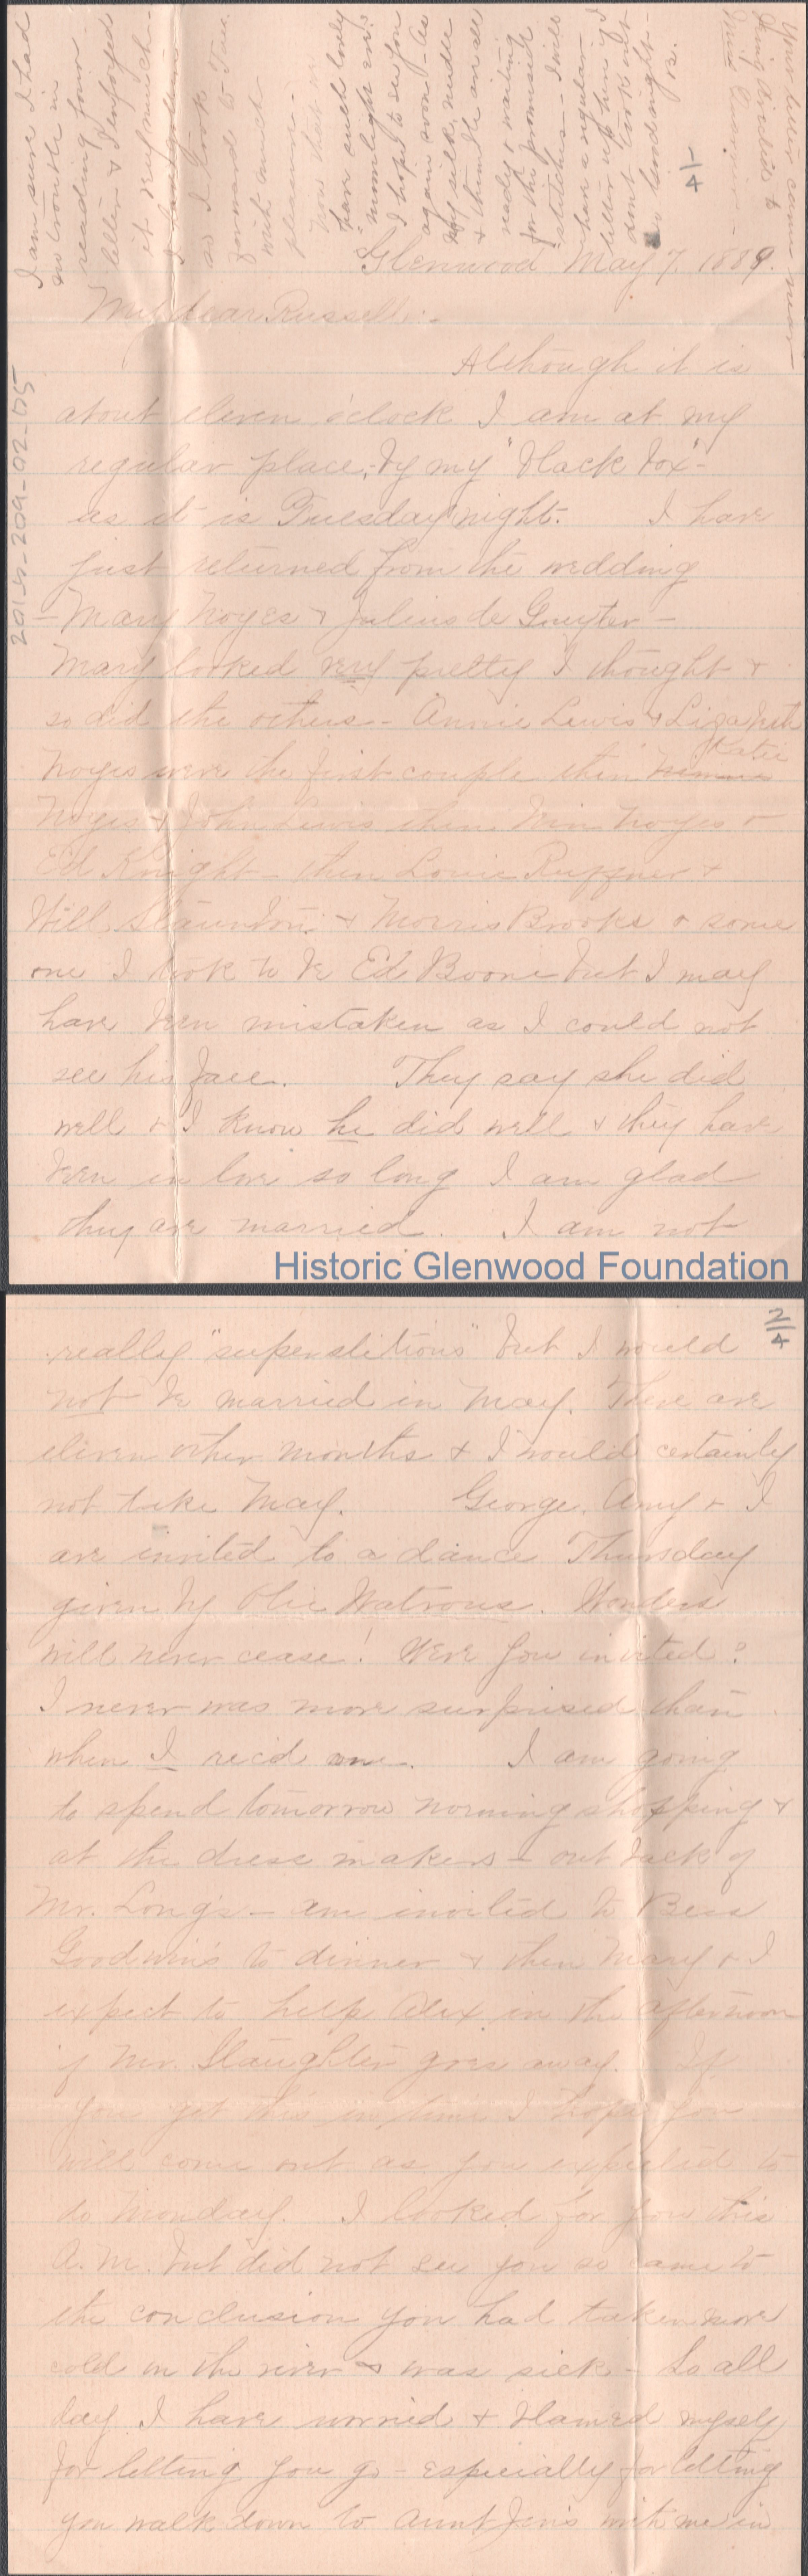 I am sure I had
no trouble in
reading your
letter & enjoyed
it very much -
so I look
forward to Tues.
with much
pleasure -
Now that we
have such lovely
"moonlight eves"
I hope to see you
again soon - As
my silk, needle
& thimble are all
ready & waiting
for the promised
"stitches" - I will
have a regular
letter up here if I
don't look out
so Goodnight -
Your letter came near
being directed to
Miss
1/4
Glenwood May 7. 1889.
My dear Russell:-
Although it is
about eleven o'clock I am at my
regular place, by my "black box" -
as it is Tuesday night. I have
just returned from the wedding
- Mary Noyes & Julius de Gruyter -
Mary looked very pretty I thought &
so did the others - Annie Lewis & Lizabeth
Katie
Noyes were the first couple then
Noyes & John Lewis then Min Noyes &
Ed Knight - then Louie Ruffner &
Will Staunton & Morris Brooks & some
one I took to be Ed Boone but I may
have been mistaken as I could not
see his face. They say she did
well & I know he did well & they have
been in love so long I am glad
they are married. I am not
2015-209-02-05
Historic Glenwood Foundation
2/4
really "superstitious" but I would
not be married in May. There are
eleven other months & I would certainly
not take May. George, Amy & I
are invited to a dance Thursday
given by Olie Watrous. Wonders
will never cease! Were you invited?
I never was more surprised than
when I rec'd one. I am going
to spend tomorrow morning shopping &
at the dress makers - out back of
Mr. Long's - am invited to Bess
Goodwin's to dinner & then Mary & I
expect to help Alex in the afternoon
if Mr. Slaughter goes away. If
you get this in time I hope you
will come out as you expected to
do Monday. I looked for you this
A.M. but did not see you so came to
the conclusion you had taken more
cold on the river & was sick - So all
day I have worried & blamed myself
for letting you go - especially for letting
you walk down to Aunt Jen's with me in